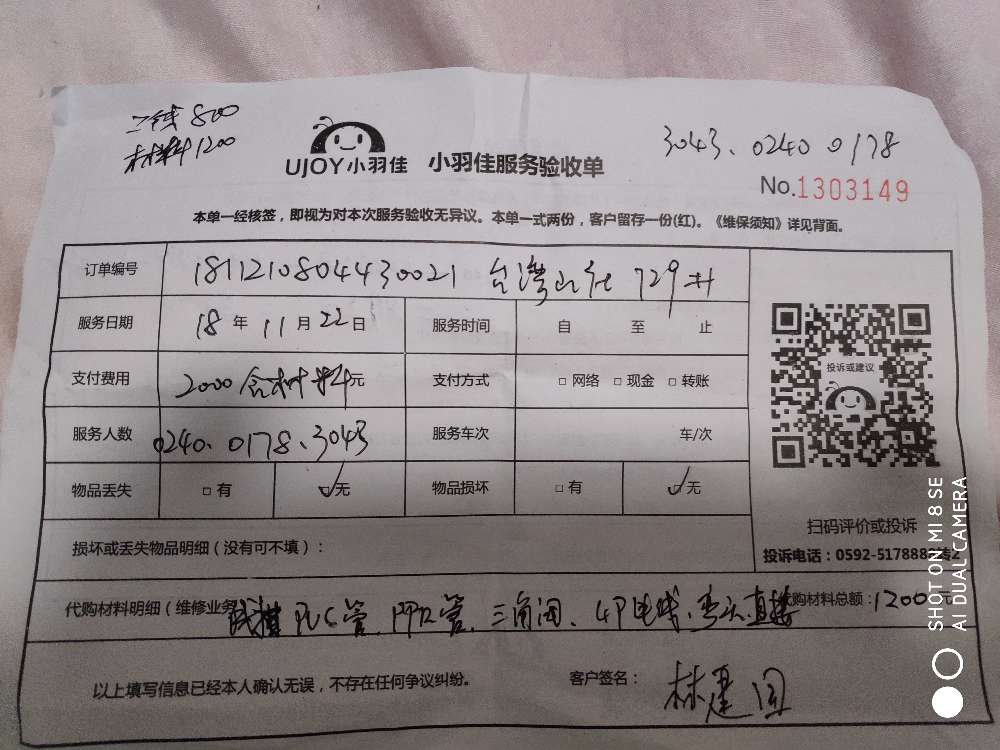 工钱 800
材料 1200
3043、0240 0178
UJOY小羽佳 小羽佳服务验收单
No.1303149
本单一经核签，即视为对本次服务验收无异议。本单一式两份，客户留存一份(红)。《维保须知》详见背面。
订单编号 1811210804430021 台湾山庄 729#
服务日期 18 年 11 月 22 日 服务时间 自 至 止
支付费用 2000含材料元 支付方式 □ 网络 □ 现金 □ 转账
服务人数 0240、0178、3043 服务车次 车/次
物品丢失 □ 有 ☑ 无 物品损坏 □ 有 ☑ 无
投诉或建议
扫码评价或投诉
投诉电话：0592-517888转2
损坏或丢失物品明细（没有可不填）：
代购材料明细（维修业务 PVC管、PPR管、三角阀、4P电线、弯头、直接 代购材料总额：1200元
以上填写信息已经本人确认无误，不存在任何争议纠纷。 客户签名： 林建国
SHOT ON MI 8 SE
AI DUAL CAMERA